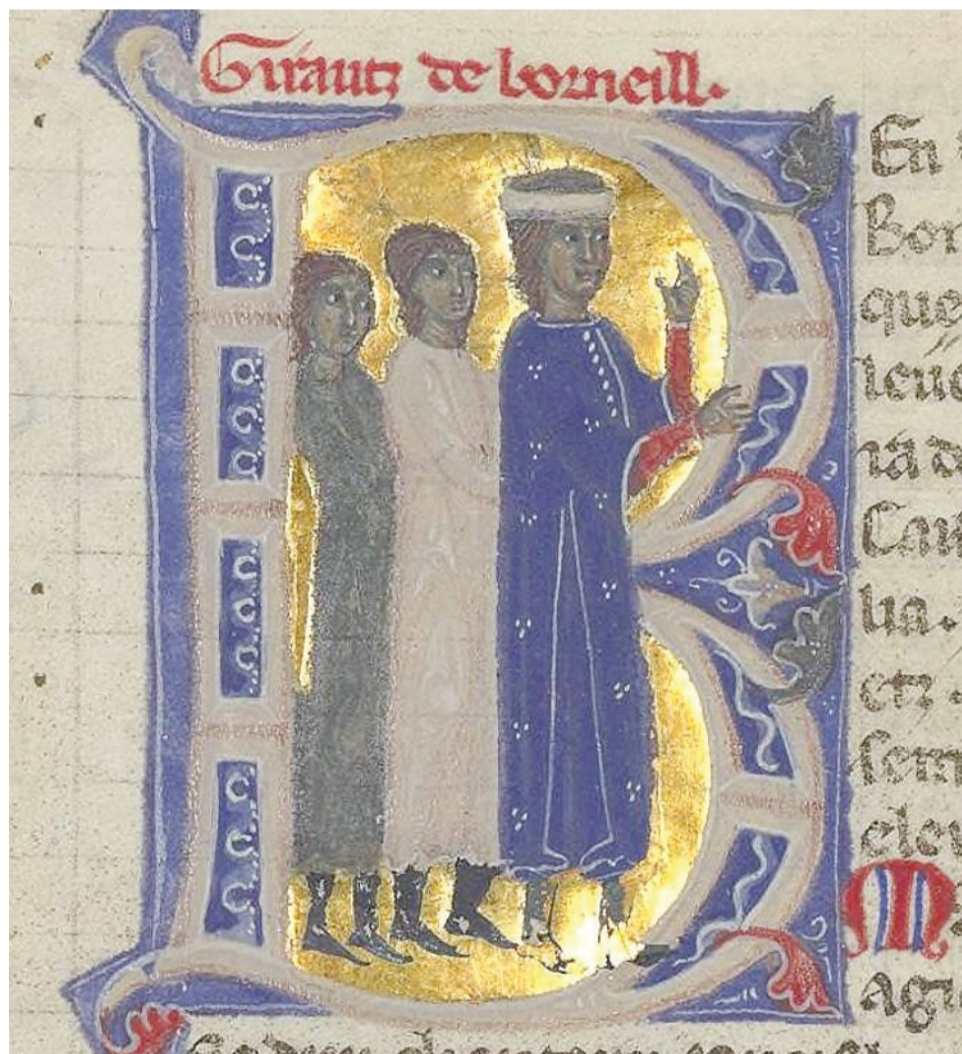 Girautz de borneill.
B
En
Bor
que
leue
ia d
Can
lia.
etz.
sem
eleu
M
agi